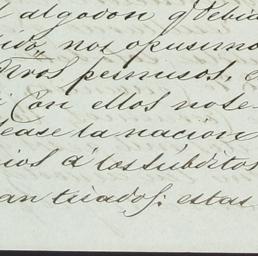 l algodon q debia
dido, nos opusimo
Ntros permisos,
Con ellos no se
ease la nacion
cios á los subditos
an tuados: estas